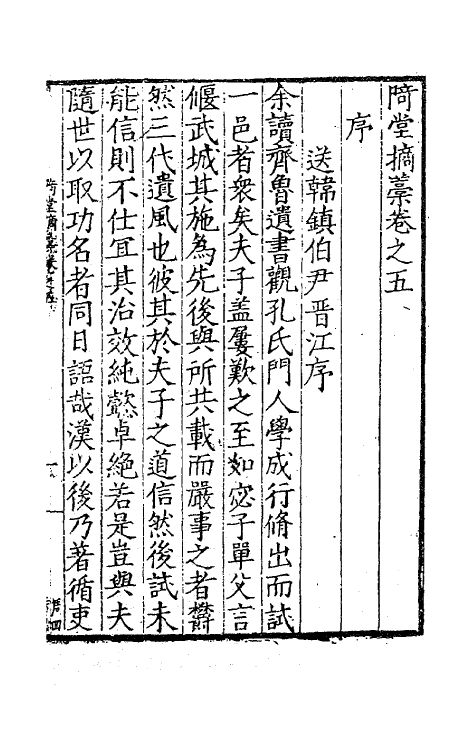 陭堂摘藁卷之五
序
送韓鎮伯尹晋江序
余讀齊魯遺書觀孔氏門人學成行脩出而試
一邑者衆矣夫子盖屢歎之至如宓子單父言
偃武城其施為先後與所共載而嚴事之者欝
然三代遺風也彼其於夫子之道信然後試未
能信則不仕冝其治效純懿卓絶若是豈與夫
隨世以取功名者同日語哉漢以後乃著循吏